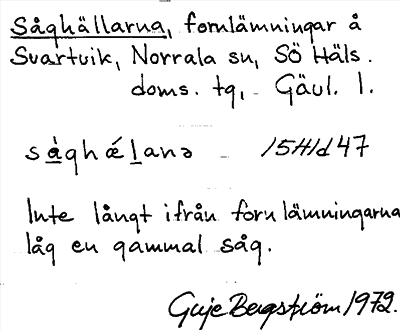 Såghällarna, fornlämningar å
Svartvik, Norrala sn, SÖ Häls.
doms. tg, Gävl. l.
såghǽlanə 15H1d47
Inte långt ifrån fornlämningarna
låg en gammal såg.
Guje Bergström 1972.